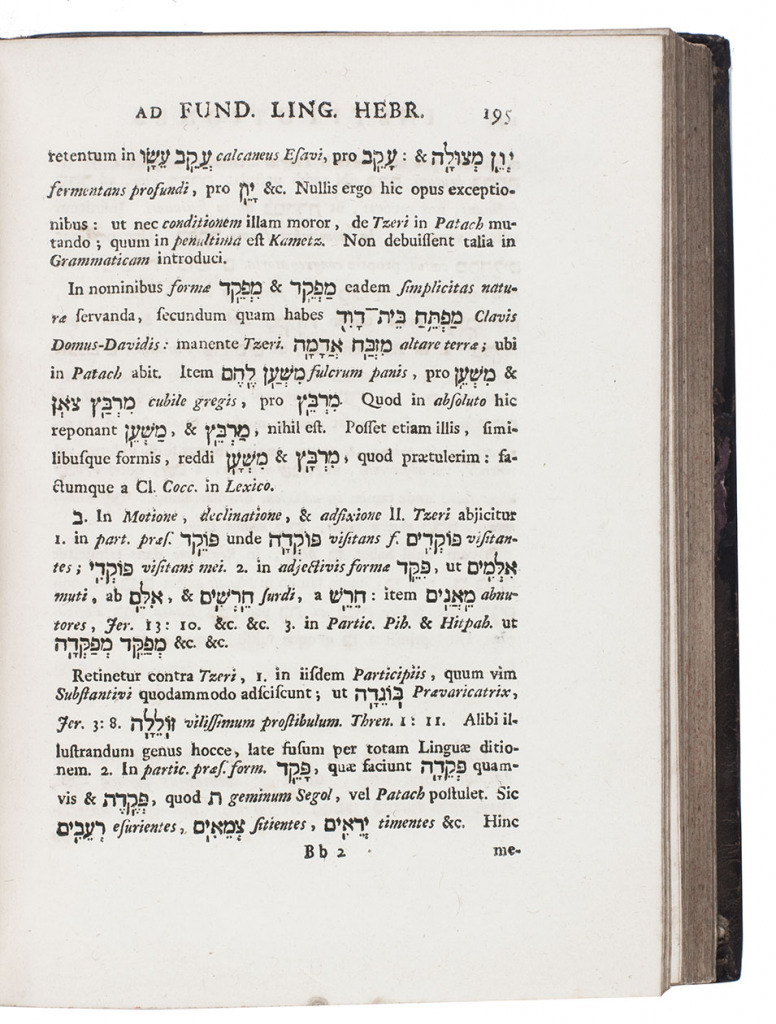 AD FUND. LING. HEBR. 195
retentum in עֲקַב עֵשָׂו calcaneus Eſavi, pro עָקֵב : & יְוֵן מְצוּלָה
fermentans profundi, pro יָוֵן &c. Nullis ergo hic opus exceptio-
nibus: ut nec conditionem illam moror, de Tzeri in Patach mu-
tando; quum in penultima eſt Kametz. Non debuiſſent talia in
Grammaticam introduci.
In nominibus formæ מִפְקֵד & מַפְקֵד eadem ſimplicitas natu-
ræ ſervanda, ſecundum quam habes מַפְתֵּחַ בֵּית־דָּוִד Clavis
Domus-Davidis: manente Tzeri. מִזְבַּח אֲדָמָה altare terræ; ubi
in Patach abit. Item מִשְׁעַן לֶחֶם fulcrum panis, pro מִשְׁעֵן &
מִרְבַּץ צֹאן cubile gregis, pro מִרְבֵּץ. Quod in abſoluto hic
reponant מַשְׁעֵן, & מַרְבֵּץ, nihil eſt. Poſſet etiam illis, ſimi-
libuſque formis, reddi מִשְׁעָן & מִרְבָּץ, quod prætulerim: fa-
ctumque a Cl. Cocc. in Lexico.
ב. In Motione, declinatione, & adfixione II. Tzeri abjicitur
1. in part. præſ. פּוֹקֵד unde פּוֹקְדָה viſitans f. פּוֹקְדִים viſitan-
tes; פּוֹקְדִי viſitans mei. 2. in adjectivis formæ פִּקֵּד, ut אִלְּמִים
muti, ab אִלֵּם, & חֵרְשִׁים ſurdi, a חֵרֵשׁ: item מֵאֲנִים abnu-
tores, Jer. 13: 10. &c. &c. 3. in Partic. Pih. & Hitpah. ut
מְפַקֵּד מְפַקְּדָה &c. &c.
Retinetur contra Tzeri, 1. in iiſdem Participiis, quum vim
Subſtantivi quodammodo adſciſcunt; ut בּוֹגֵדָה Prævaricatrix,
Jer. 3: 8. זוֹלֵלָה viliſſimum proſtibulum. Thren. 1: 11. Alibi il-
luſtrandum genus hocce, late fuſum per totam Linguæ ditio-
nem. 2. In partic. præſ. form. פָּקֵד, quæ faciunt פְּקֵדָה quam-
vis & פְּקֶדֶת, quod ת geminum Segol, vel Patach poſtulet. Sic
רְעֵבִים eſurientes, צְמֵאִים ſitientes, יְרֵאִים timentes &c. Hinc
Bb 2 me-